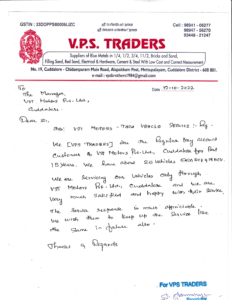 GSTIN : 33DDPPS8006LIZC
Cell : 98941 - 06277
98941 - 06276
V.P.S. TRADERS
Suppliers of Blue Metals in 1/4, 1/2, 3/4, 11/2, Bricks and Sand,
Filling Sand, Red Sand, Electrical & Hardware, Cement & Steel With Low Cost and Correct Measurement
No. 19, Cuddalore - Chidambaram Main Road, Alpaakkam Post, Cuddalore District - 608 801.
To
The Manager,
VPS Motors Pvt. Ltd.,
Cuddalore.
17-10-2022
Dear Sir,
Sub: VPS Motors - Tata Vehicle Service - Reg.
We [VPS TRADERS] are the Regular Day account
Customer to VPS Motors Pvt. Ltd., Cuddalore for Past
15 Years. We have about 20 Vehicles
We are Servicing our Vehicles only through
VPS Motors Pvt. Ltd., Cuddalore and we are
Very much Satisfied and happy with their Service.
The Service response is most appreciable.
We wish them to keep up the Service like
the Same in future also.
Thanks & Regards
For VPS TRADERS